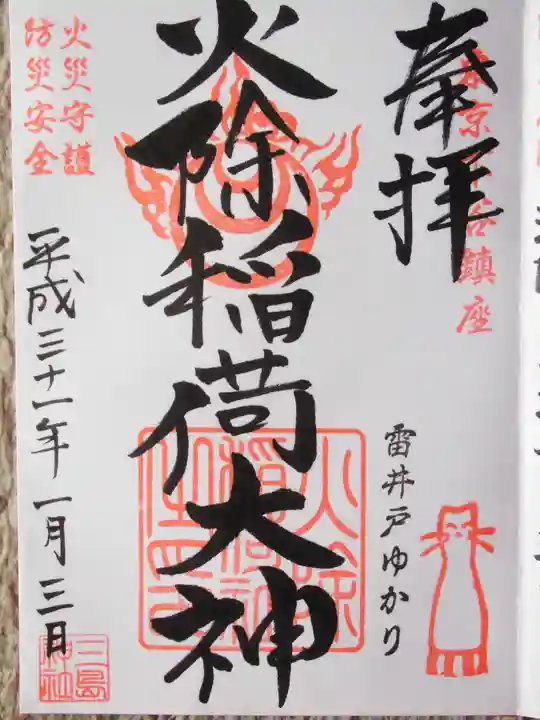 奉拝
東京下谷鎮座
雷井戸ゆかり
火除稲荷大神
火除
稲荷神
火災守護
防災安全
平成三十一年一月三日
三島
神社